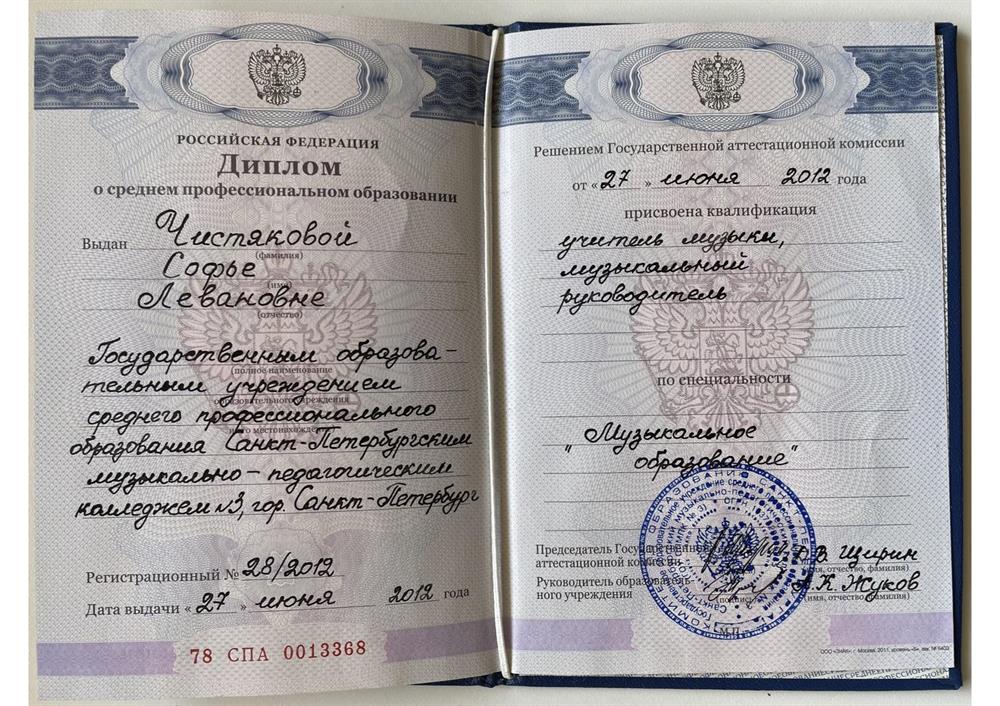 РОССИЙСКАЯ ФЕДЕРАЦИЯ
Диплом
о среднем профессиональном образовании
Выдан Чистяковой
(фамилия)
Софье
(имя)
Левановне
(отчество)
Государственным образова-
(полное наименование
тельным учреждением
образовательного учреждения
среднего профессионального
и его местонахождение)
образования Санкт-Петербургским
музыкально-педагогическим
колледжем №3, гор. Санкт-Петербург
Регистрационный № 28/2012
Дата выдачи «27» июня 2012 года
78 СПА 0013368
Решением Государственной аттестационной комиссии
от «27» июня 2012 года
присвоена квалификация
учитель музыки,
музыкальный
руководитель
по специальности
"Музыкальное
образование"
Председатель Государственной
аттестационной комиссии
В. Щирин
(имя, отчество, фамилия)
Руководитель образователь-
ного учреждения
К. Жуков
(подпись) (имя, отчество, фамилия)
М.П.